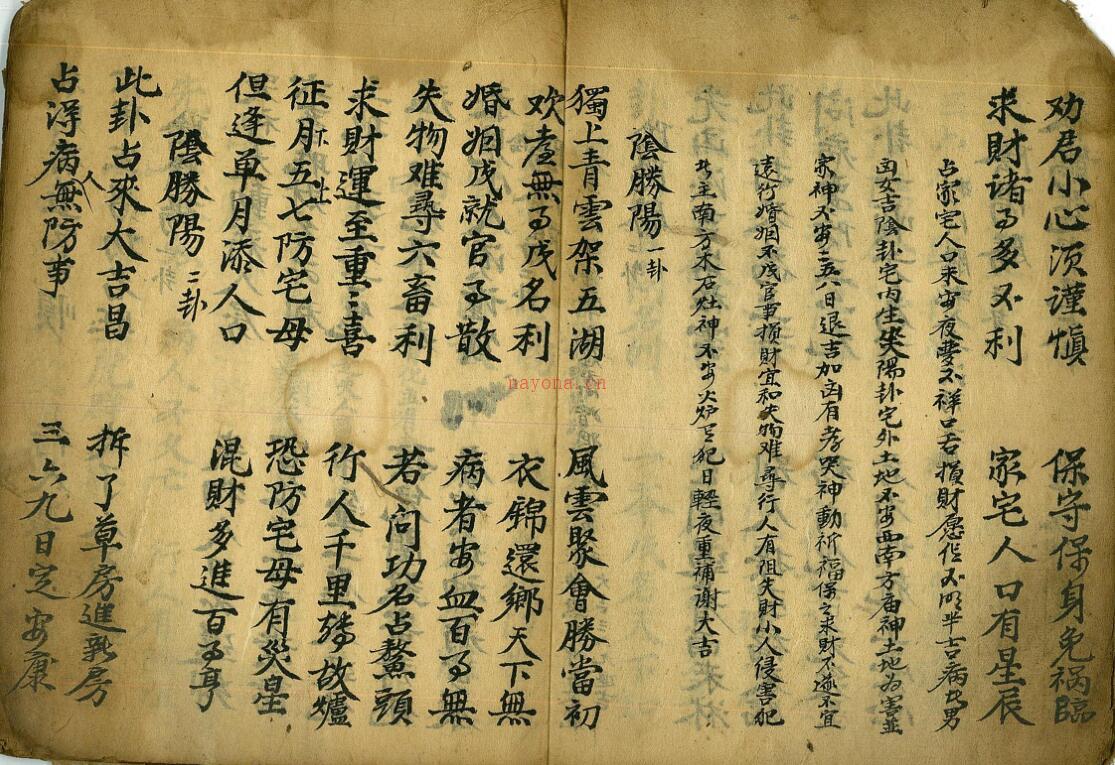 劝君小心须谨慎　保守保身免祸臨
求財诸事多不利　家宅人口有星辰
占家宅人口未安夜夢不祥口舌損財愿 不明半吉病 男
凶女吉陰卦宅内生災陽卦宅外土地不安西南方庙神土地为害並
家神不安二五八日退吉加凶有孝哭神動祈福保之求財不遂不宜
遠行婚姻不成官事損財宜和失物难尋行人有阻失財小人侵害犯
 主南方木石灶神不安火炉 犯日輕夜重補谢大吉
陰勝陽 一卦
獨上青雲架五湖　風雲聚會勝當初
欢 無事成名利　衣錦還鄉天下無
婚姻成就官事散　病者安血百事無
失物难尋六畜利　若问功名占鰲頭
求財運至重重喜　行人千里 故爐
征月五七防宅母　恐防宅母有災星
但逢单月添人口　混財多進百事亨
陰勝陽 二卦
此卦占來大吉昌　拆了草房進 房
占浮病人無防事　三六九日定安康
nayona.cn